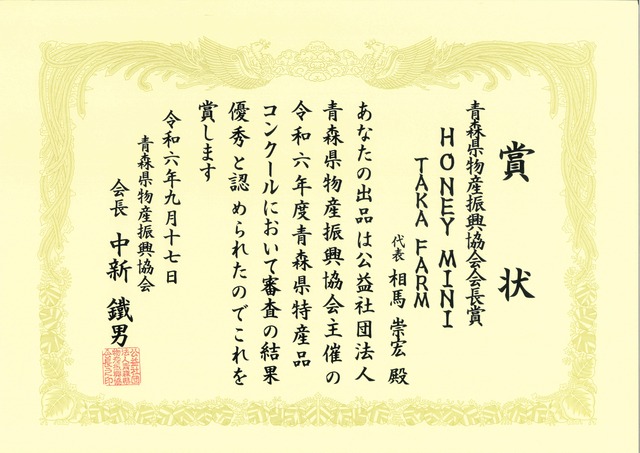 賞状
青森県物産振興協会会長賞
HONEY MINI
TAKA FARM
代表 相馬 崇宏 殿
あなたの出品は公益社団法人
青森県物産振興協会主催の
令和六年度青森県特産品
コンクールにおいて審査の結果
優秀と認められたのでこれを
賞します
令和六年九月十七日
青森県物産振興協会
会長 中新 鐵男